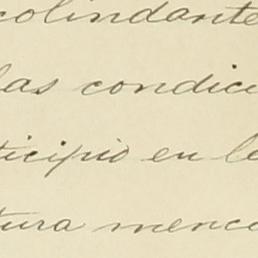 colindante
las condici
ticipio en l
tura menco